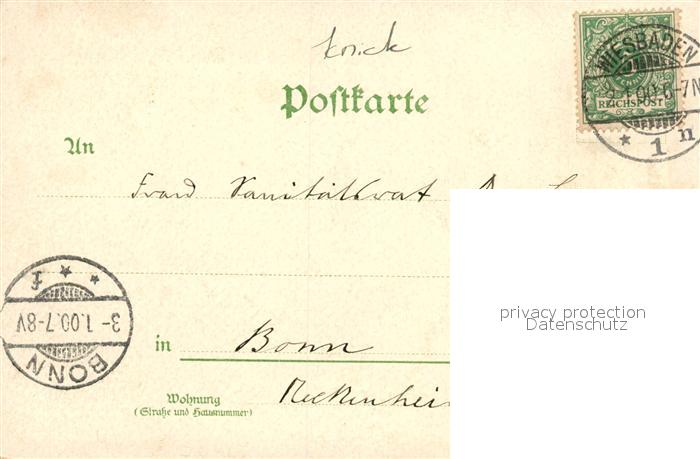 Postkarte
WIESBADEN
1.00.6-7N
* 1 n
REICHSPOST
An
Frau Sanitätsrat
BONN
3-1.00.7-8V
* * f
privacy protection
Datenschutz
in Bonn
Wohnung
(Straße und Hausnummer)